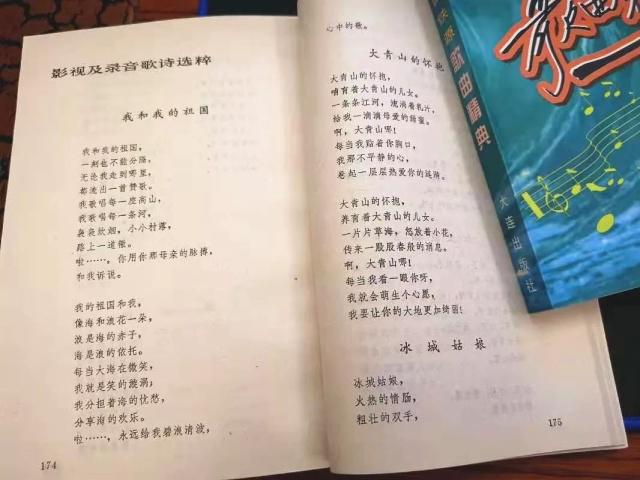 影视及录音歌诗选粹
我和我的祖国
我和我的祖国,
一刻也不能分隔,
无论我走到哪里,
都流出一首赞歌。
我歌唱每一座高山,
我歌唱每一条河,
袅袅炊烟,小小村落,
路上一道辙。
啦……,你用你那母亲的脉搏,
和我诉说。
我的祖国和我,
像海和浪花一朵,
浪是海的赤子,
海是浪的依托。
每当大海在微笑,
我就是笑的漩涡;
我分担着海的忧愁,
分享海的欢乐。
啦……,永远给我碧浪清波,
174
心中的歌。
大青山的怀抱
大青山的怀抱,
哺育着大青山的儿女。
一条条江河,流淌着乳汁,
给我一滴滴母爱的甜蜜。
啊,大青山哪!
每当我贴着你胸口,
我那不平静的心,
卷起一层层热爱你的涟漪。
大青山的怀抱,
养育着大青山的儿女。
一片片草海,怒放着小花,
传来一股股春般的消息。
啊,大青山哪!
每当我看一眼你呀,
我就会萌生个心愿,
我要让你的大地更加绮丽!
冰城姑娘
冰城姑娘,
火热的情肠,
粗壮的双手,
175
歌曲精典
大连出版社